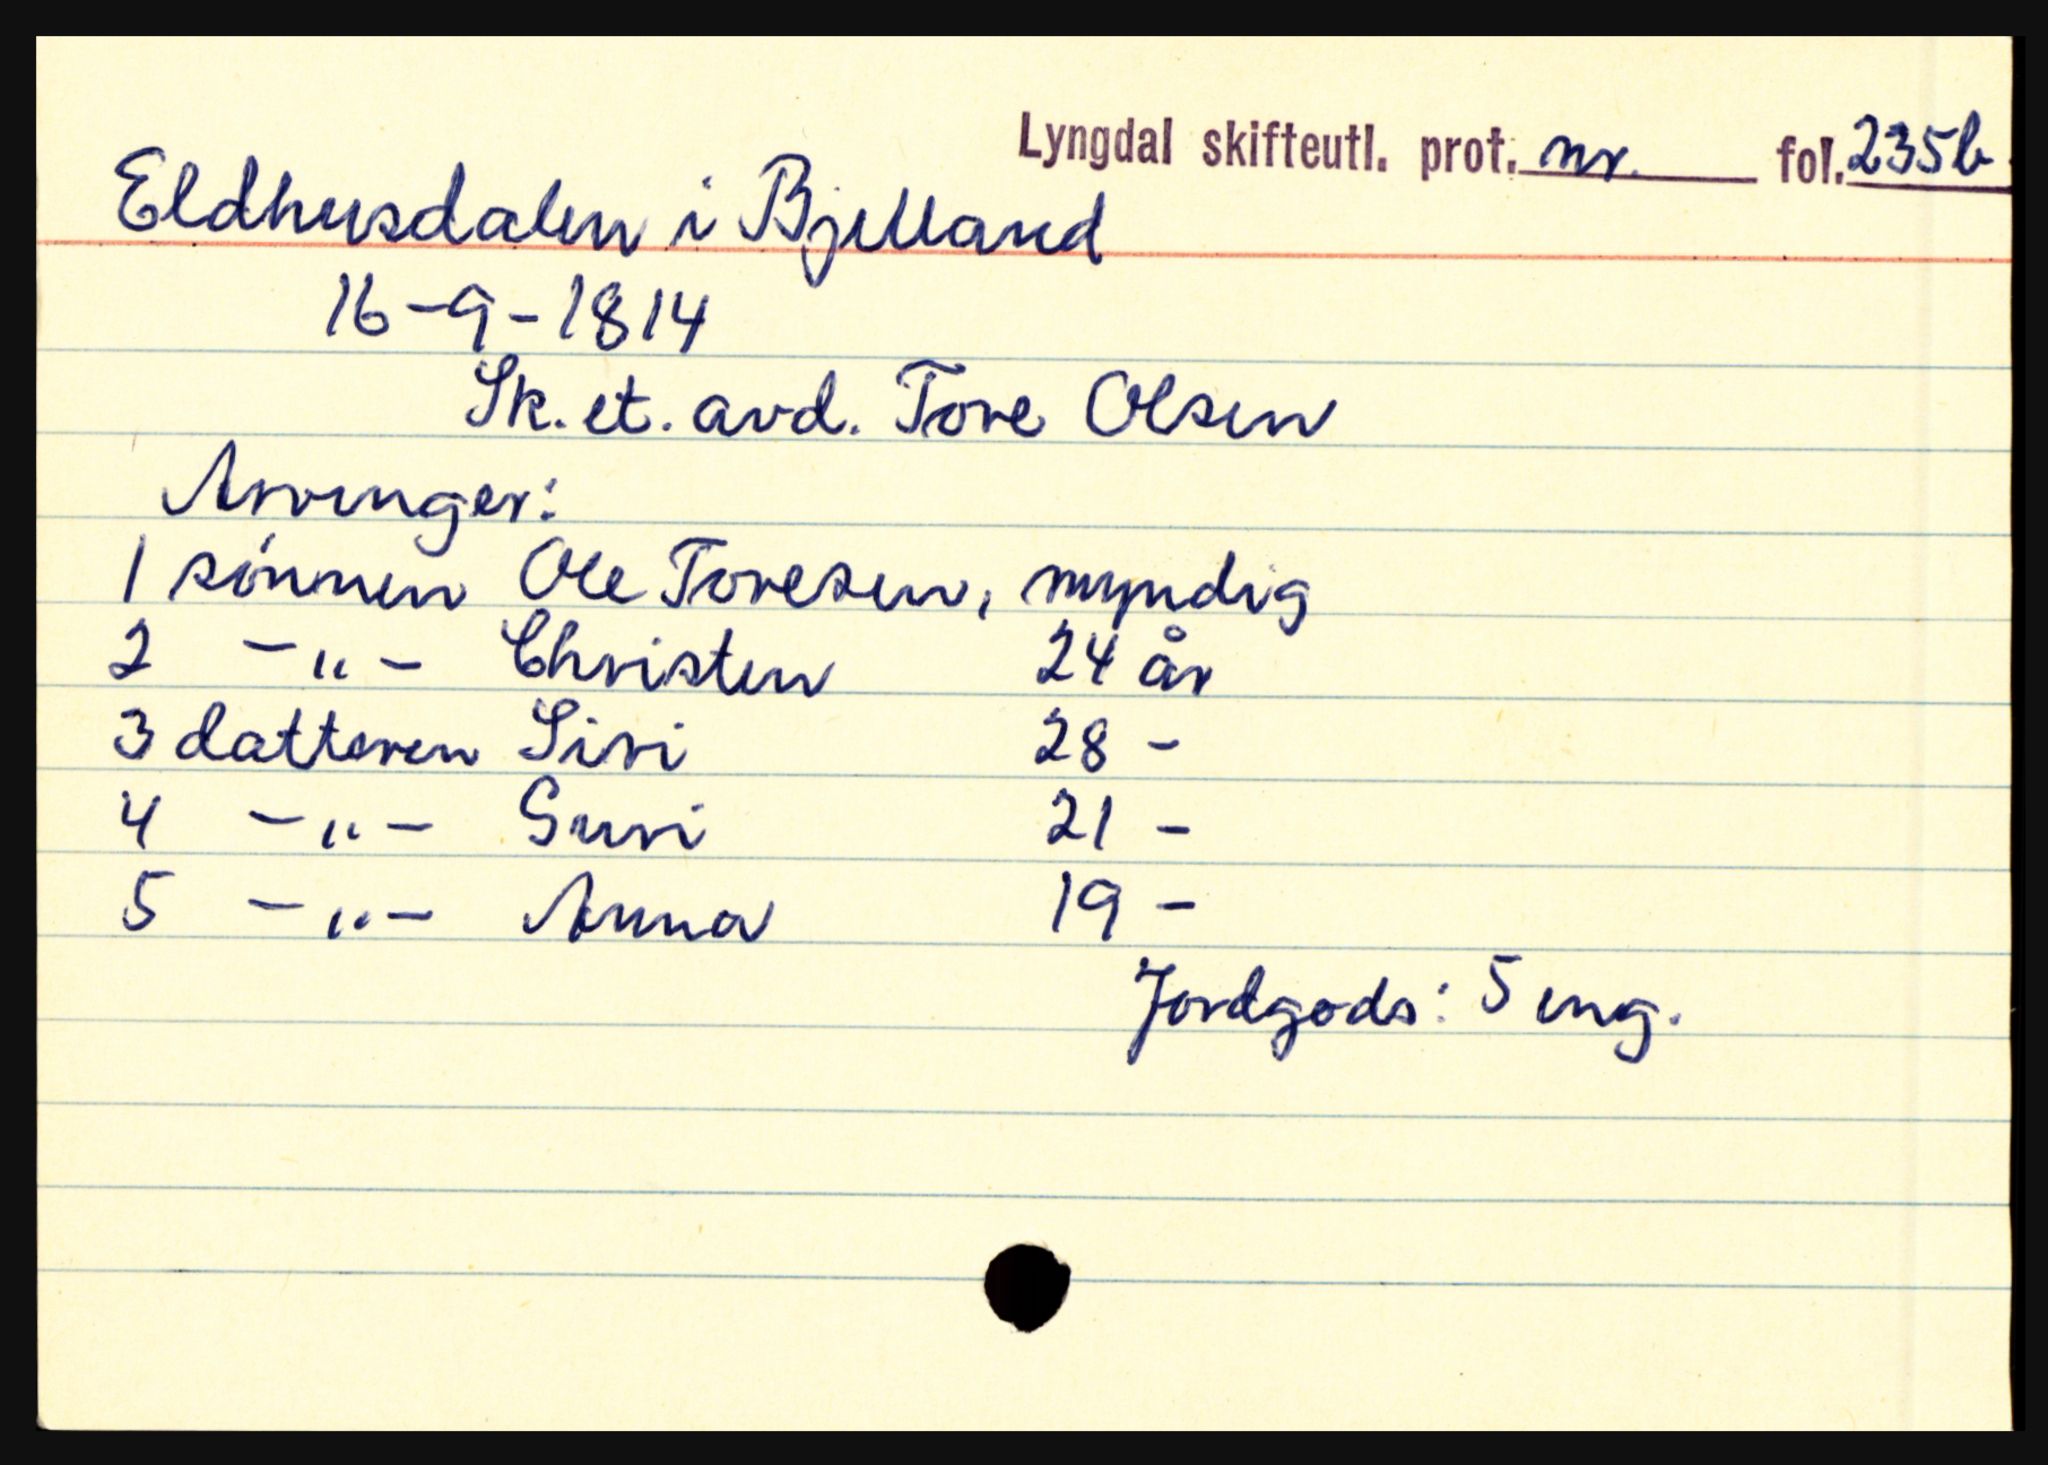 Lyngdal skifteutl. prot. nr. fol. 235b
Eldhusdalen i Bjelland
16-9-1814
Sk. et. avd. Tore Olsen
Arvinger:
1 sønnen Ole Toresen, myndig
2 -"- Christen 24 år
3 datteren Siri 28 -
4 -"- Guri 21 -
5 -"- Anna 19 -
Jordgods: 5 eng.